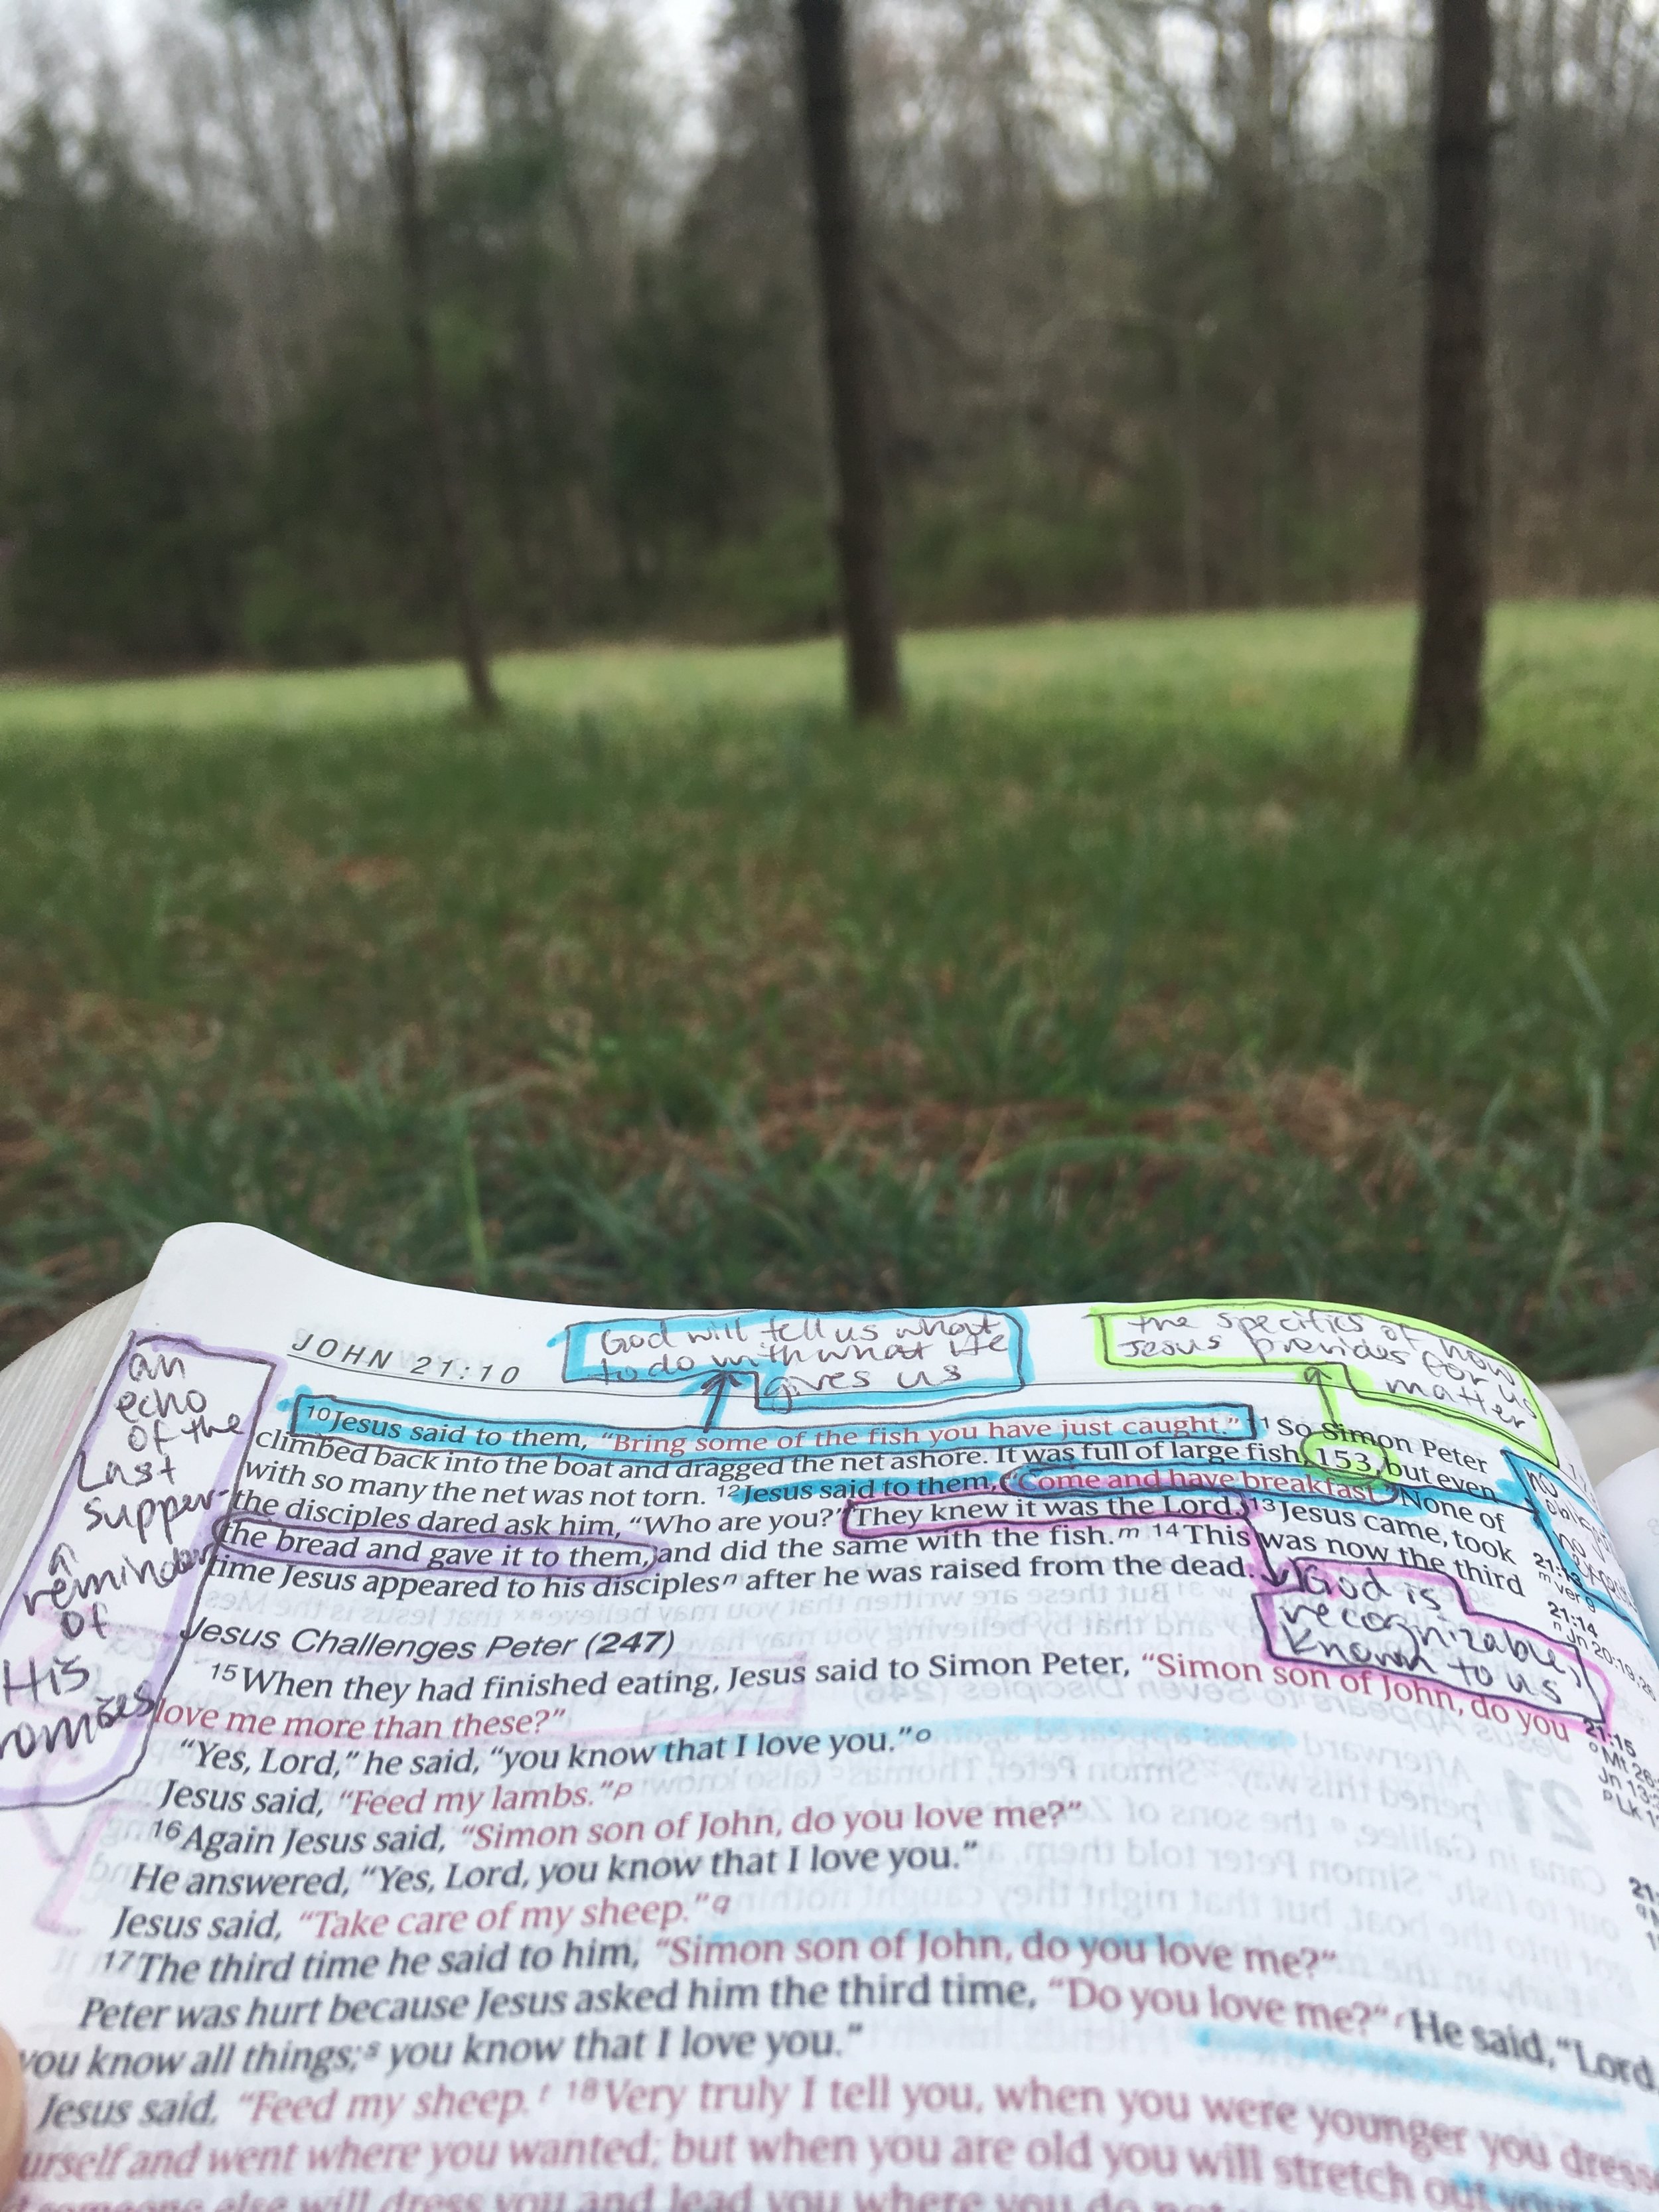 JOHN 21:10
God will tell us what
to do with what He
gives us
the specifics of how
Jesus provides for us
matter
an
echo
of the
Last
supper-
a
reminder
of
His
10Jesus said to them, “Bring some of the fish you have just caught.” 11So Simon Peter
climbed back into the boat and dragged the net ashore. It was full of large fish, 153, but even
with so many the net was not torn. 12Jesus said to them, “Come and have breakfast.” None of
the disciples dared ask him, “Who are you?” They knew it was the Lord. 13Jesus came, took
the bread and gave it to them, and did the same with the fish.m 14This was now the third
time Jesus appeared to his disciplesn after he was raised from the dead.
God is
recognizable,
known to us
no
no
m ver 9
21:14
n Jn 20:19,26
Jesus Challenges Peter (247)
15When they had finished eating, Jesus said to Simon Peter, “Simon son of John, do you
love me more than these?”
“Yes, Lord,” he said, “you know that I love you.”o
Jesus said, “Feed my lambs.”p
16Again Jesus said, “Simon son of John, do you love me?”
He answered, “Yes, Lord, you know that I love you.”
Jesus said, “Take care of my sheep.”q
17The third time he said to him, “Simon son of John, do you love me?”
Peter was hurt because Jesus asked him the third time, “Do you love me?”r He said, “Lord,
you know all things;s you know that I love you.”
Jesus said, “Feed my sheep.t 18Very truly I tell you, when you were younger you
urself and went where you wanted; but when you are old you will stretch
someone else will dress you and lead you where you do
21:15
o Mt 26
Jn 13
p Lk
21